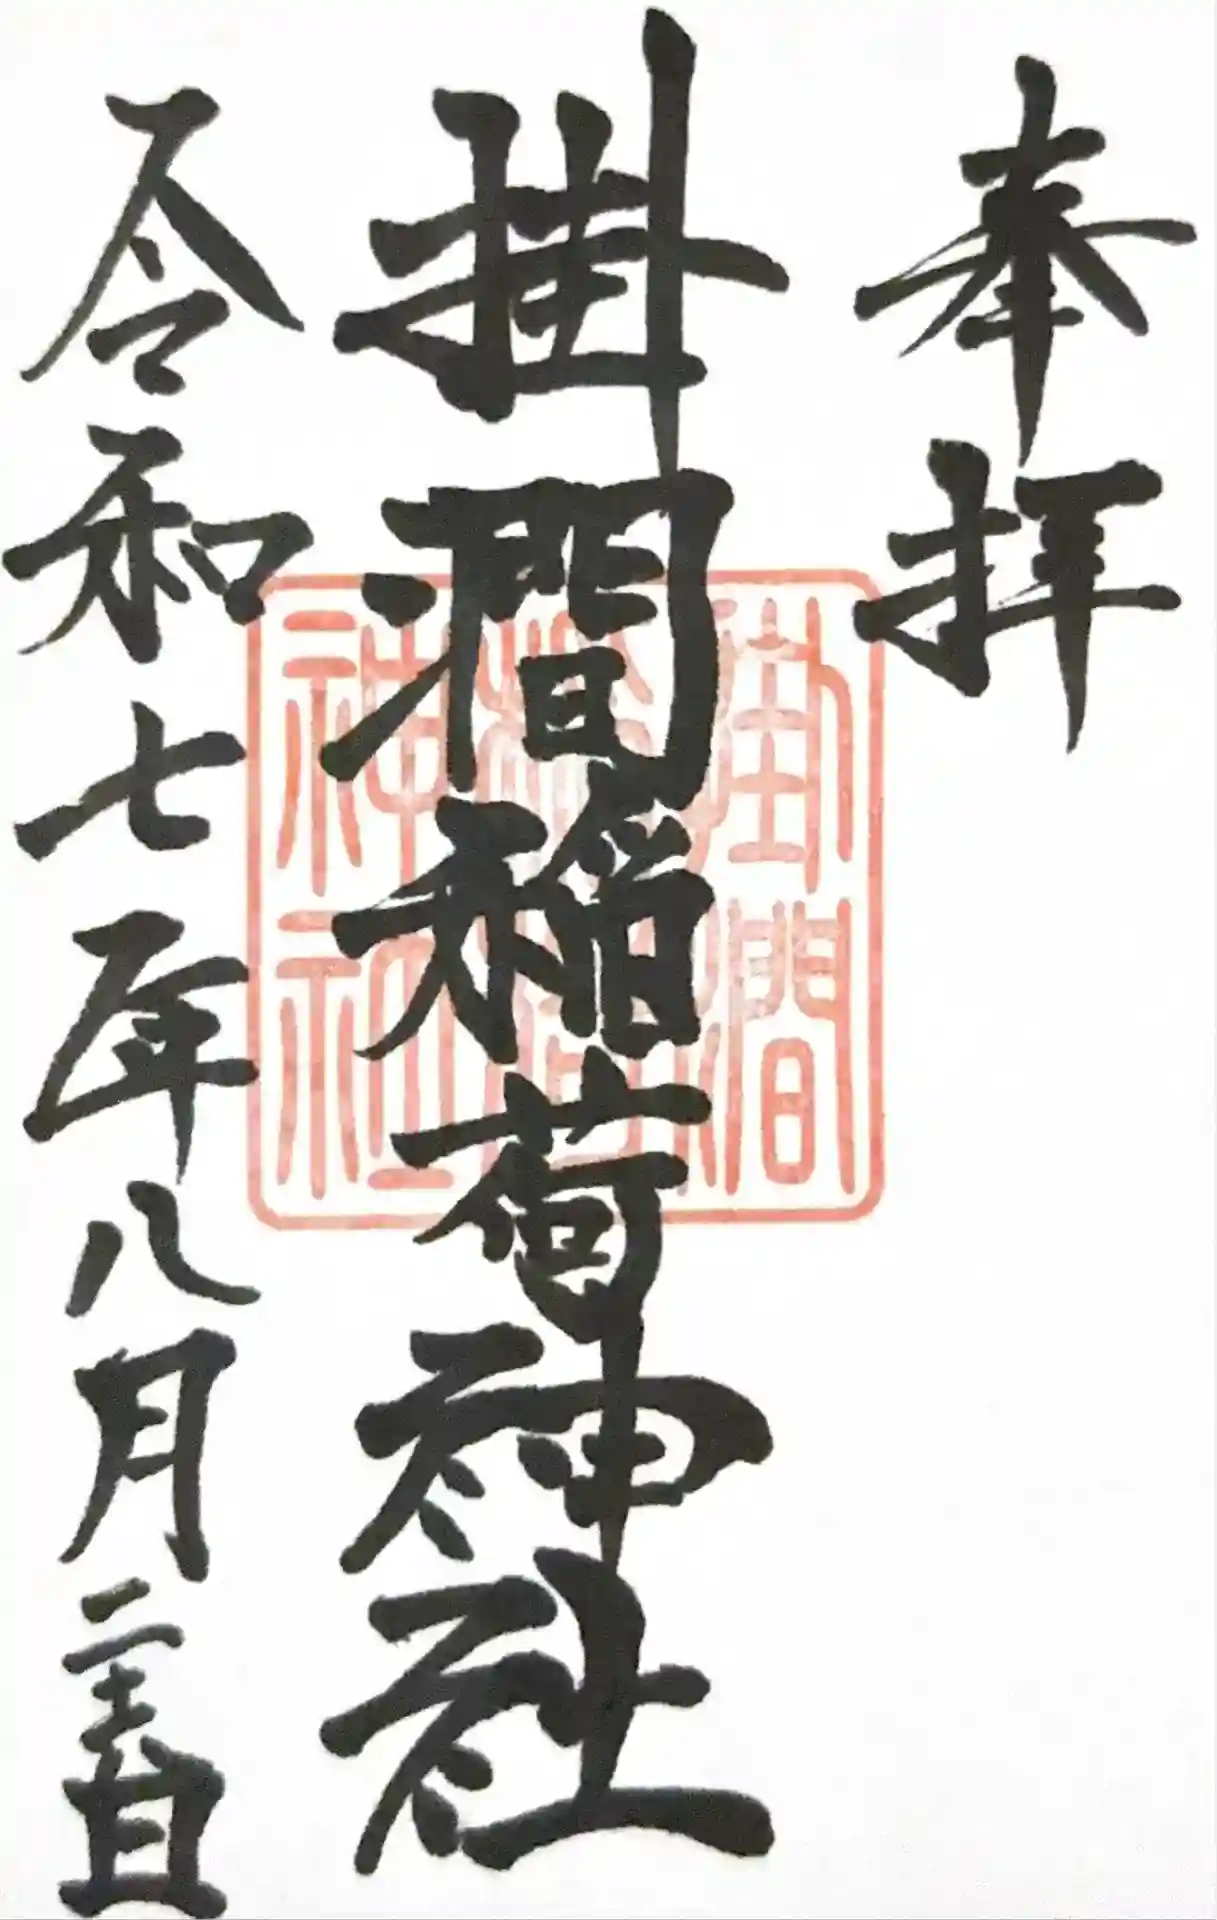 奉拝
掛澗稲荷神社
令和七年八月
掛澗
稲荷
神社